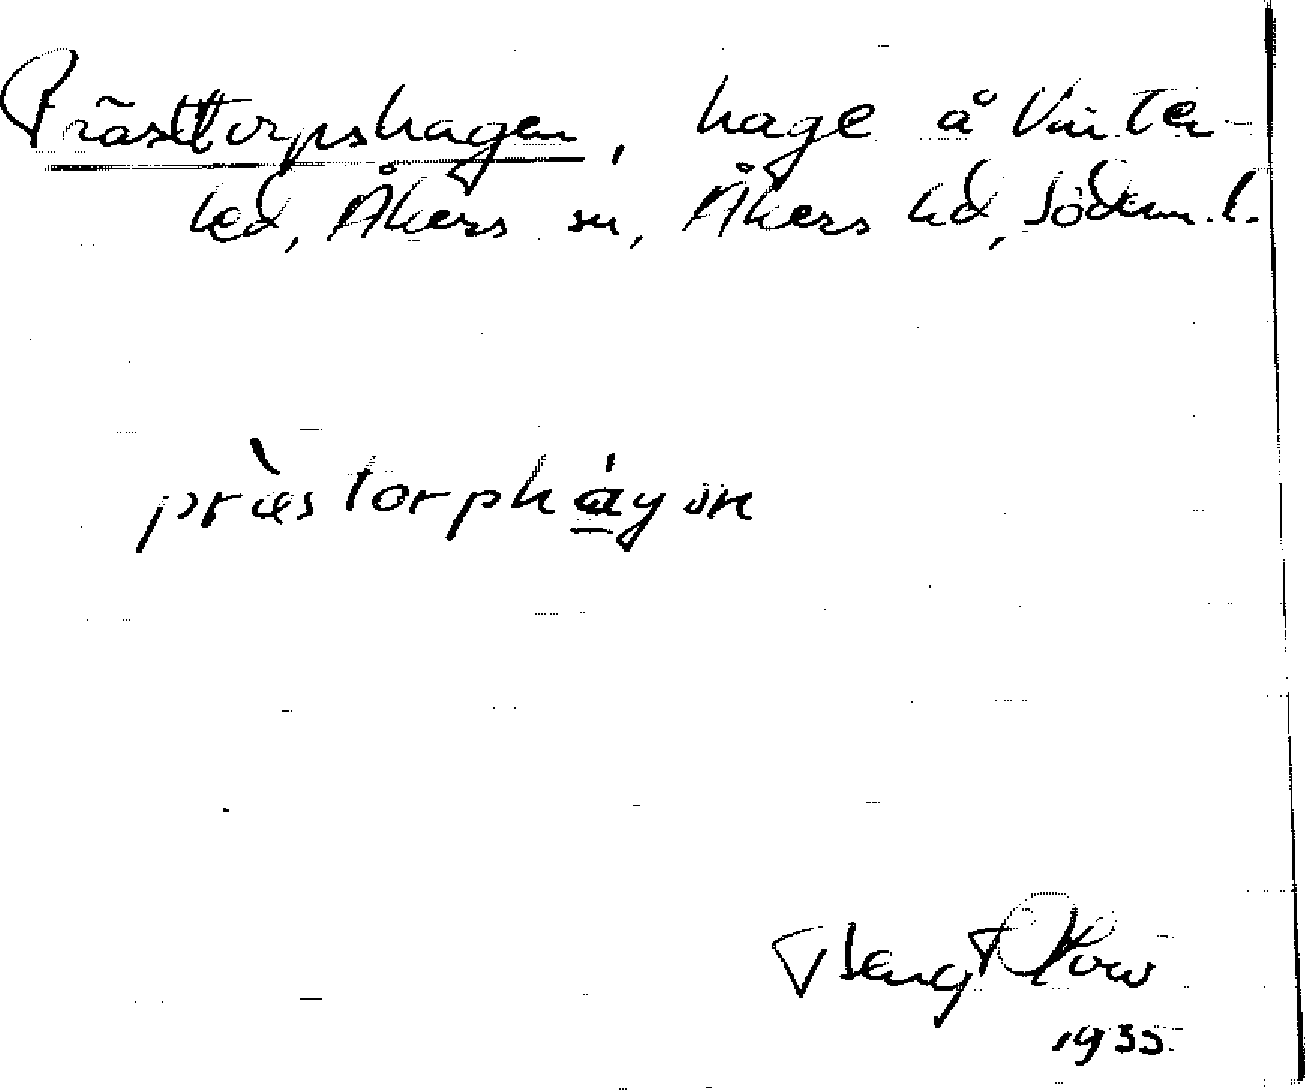 Prästtorpshagen, hage å Vinter-
led, Åkers sn, Åkers hd, Söderm. l.
præstorphàgɯn
Bengt
1935